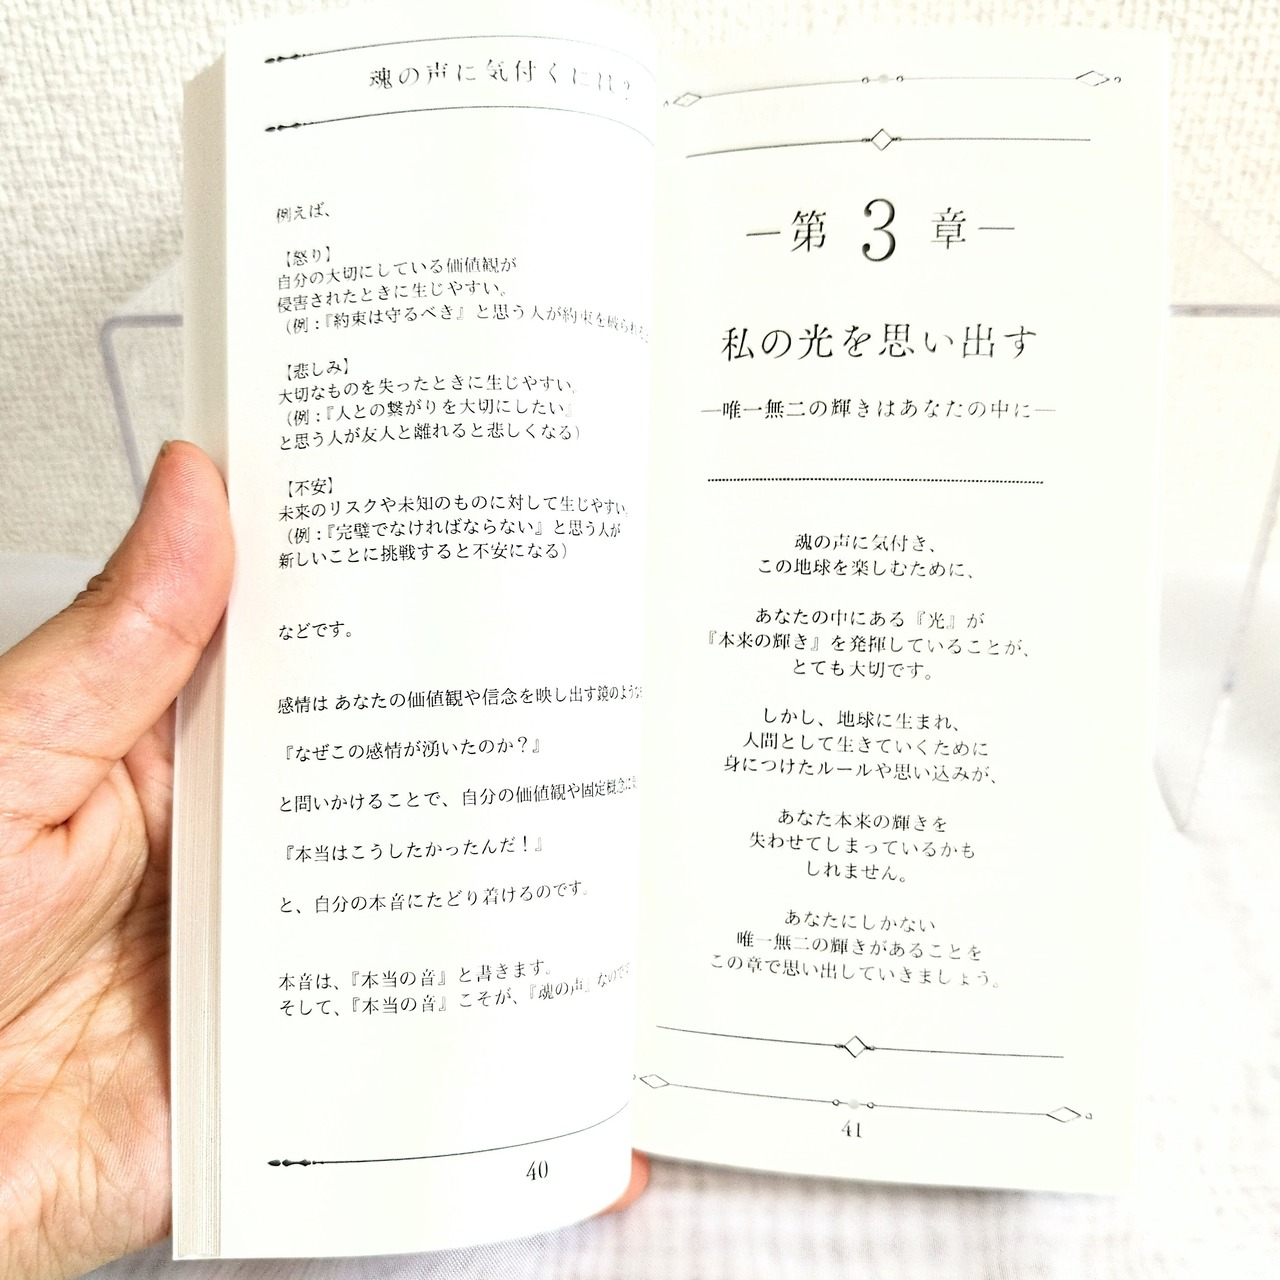 魂の声に気付くには?
例えば、
【怒り】
自分の大切にしている価値観が
侵害されたときに生じやすい。
(例:『約束は守るべき』と思う人が約束を破られ
【悲しみ】
大切なものを失ったときに生じやすい。
(例:『人との繋がりを大切にしたい』
と思う人が友人と離れると悲しくなる)
【不安】
未来のリスクや未知のものに対して生じやすい。
(例:『完璧でなければならない』と思う人が
新しいことに挑戦すると不安になる)
などです。
感情は あなたの価値観や信念を映し出す鏡のような
『なぜこの感情が湧いたのか?』
と問いかけることで、自分の価値観や固定概念に
『本当はこうしたかったんだ!』
と、自分の本音にたどり着けるのです。
本音は、『本当の音』と書きます。
そして、『本当の音』こそが、『魂の声』なのです
40
―第 3 章―
私の光を思い出す
―唯一無二の輝きはあなたの中に―
魂の声に気付き、
この地球を楽しむために、
あなたの中にある『光』が
『本来の輝き』を発揮していることが、
とても大切です。
しかし、地球に生まれ、
人間として生きていくために
身につけたルールや思い込みが、
あなた本来の輝きを
失わせてしまっているかも
しれません。
あなたにしかない
唯一無二の輝きがあることを
この章で思い出していきましょう。
41